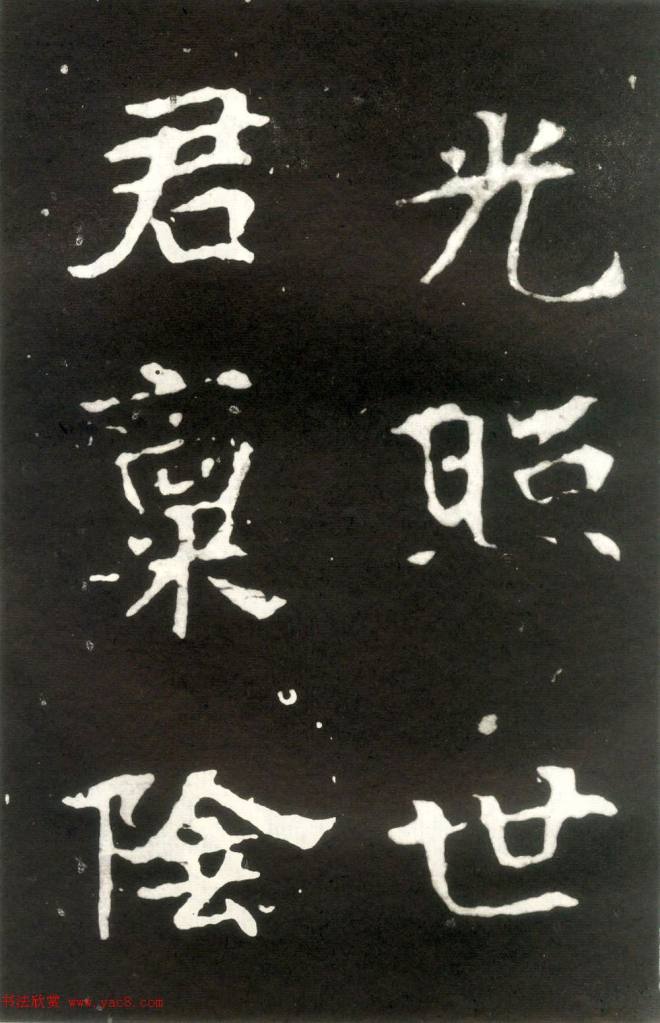 光照世
君禀陰
书法欣赏 www.yac8.com